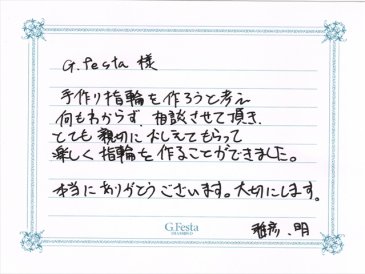 G.Festa 様
手作り指輪を作ろうと考え
何もわからず、相談させて頂き、
とても親切におしえてもらって
楽しく指輪を作ることができました。
本当にありがとうございます。大切にします。
G.Festa
雅彦、明